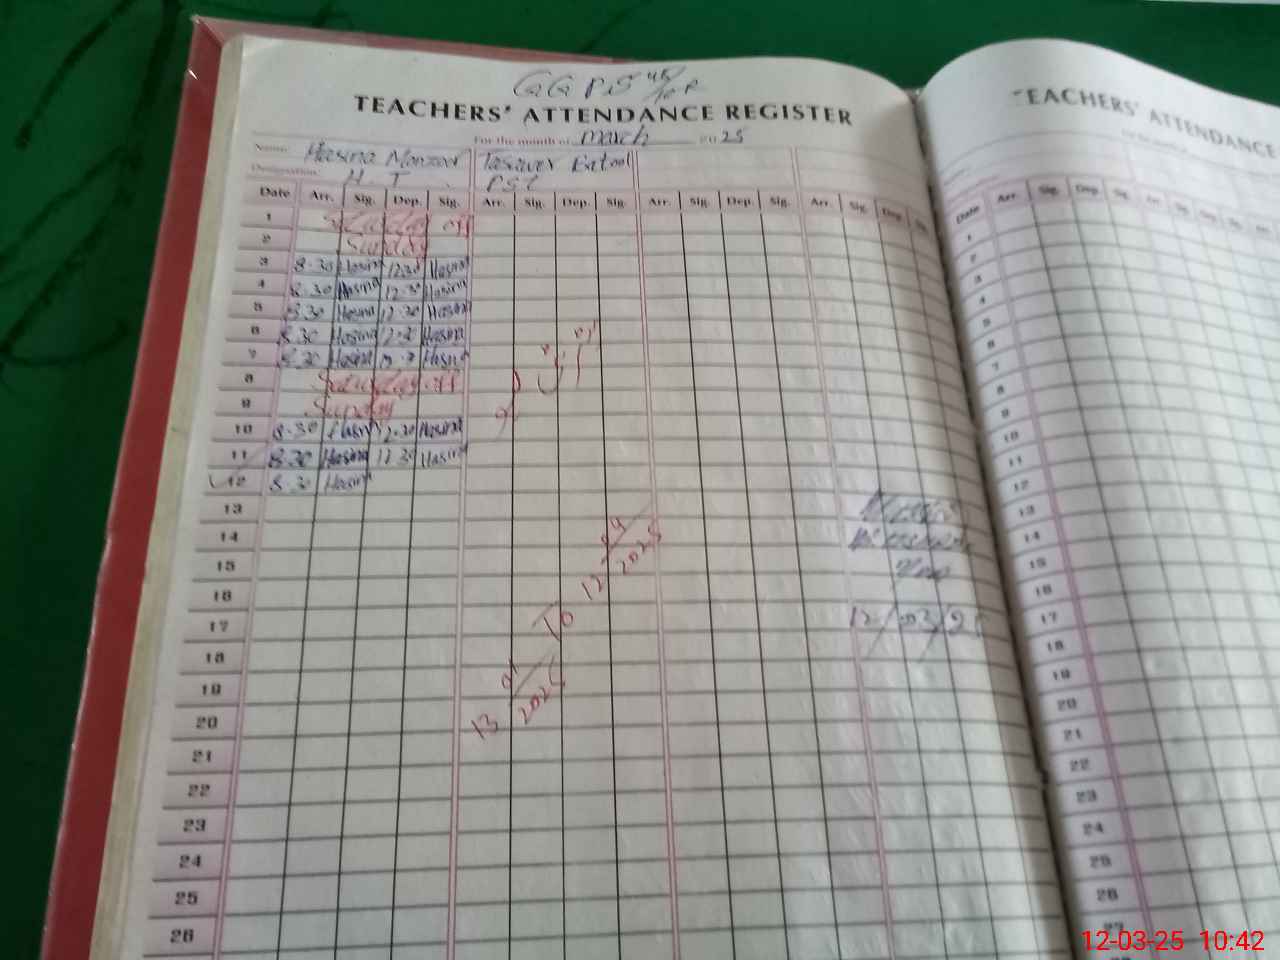 GGPS 45/10R
TEACHERS' ATTENDANCE REGISTER
For the month of March 2025
Name: Hasina Manzoor Tasawer Batool
Designation: H.T. PST
Date Arr. Sig. Dep. Sig. Arr. Sig. Dep. Sig. Arr. Sig. Dep. Sig. Arr. Sig. Dep.
1 Saturday off
2 Sunday
3 8.30 Hasina 12.30 Hasina
4 8.30 Hasina 12.30 Hasina
5 8.30 Hasina 12.30 Hasina
6 8.30 Hasina 12.30 Hasina
7 8.30 Hasina Hasina
8 Saturday off
9 Sunday
10 8.30 Hasina 12.30 Hasina
11 8.30 Hasina 12.30 Hasina
12 8.30 Hasina
13
14
15
16
17 12/03/25
18
19
20
21
22
23
24
25
26
13 2025 To 12 2025
TEACHERS' ATTENDANCE
Date Arr. Sig. Dep. Sig.
1
2
3
4
5
6
7
8
9
10
11
12
13
14
15
16
17
18
19
20
21
22
23
24
25
26
27
12-03-25 10:42